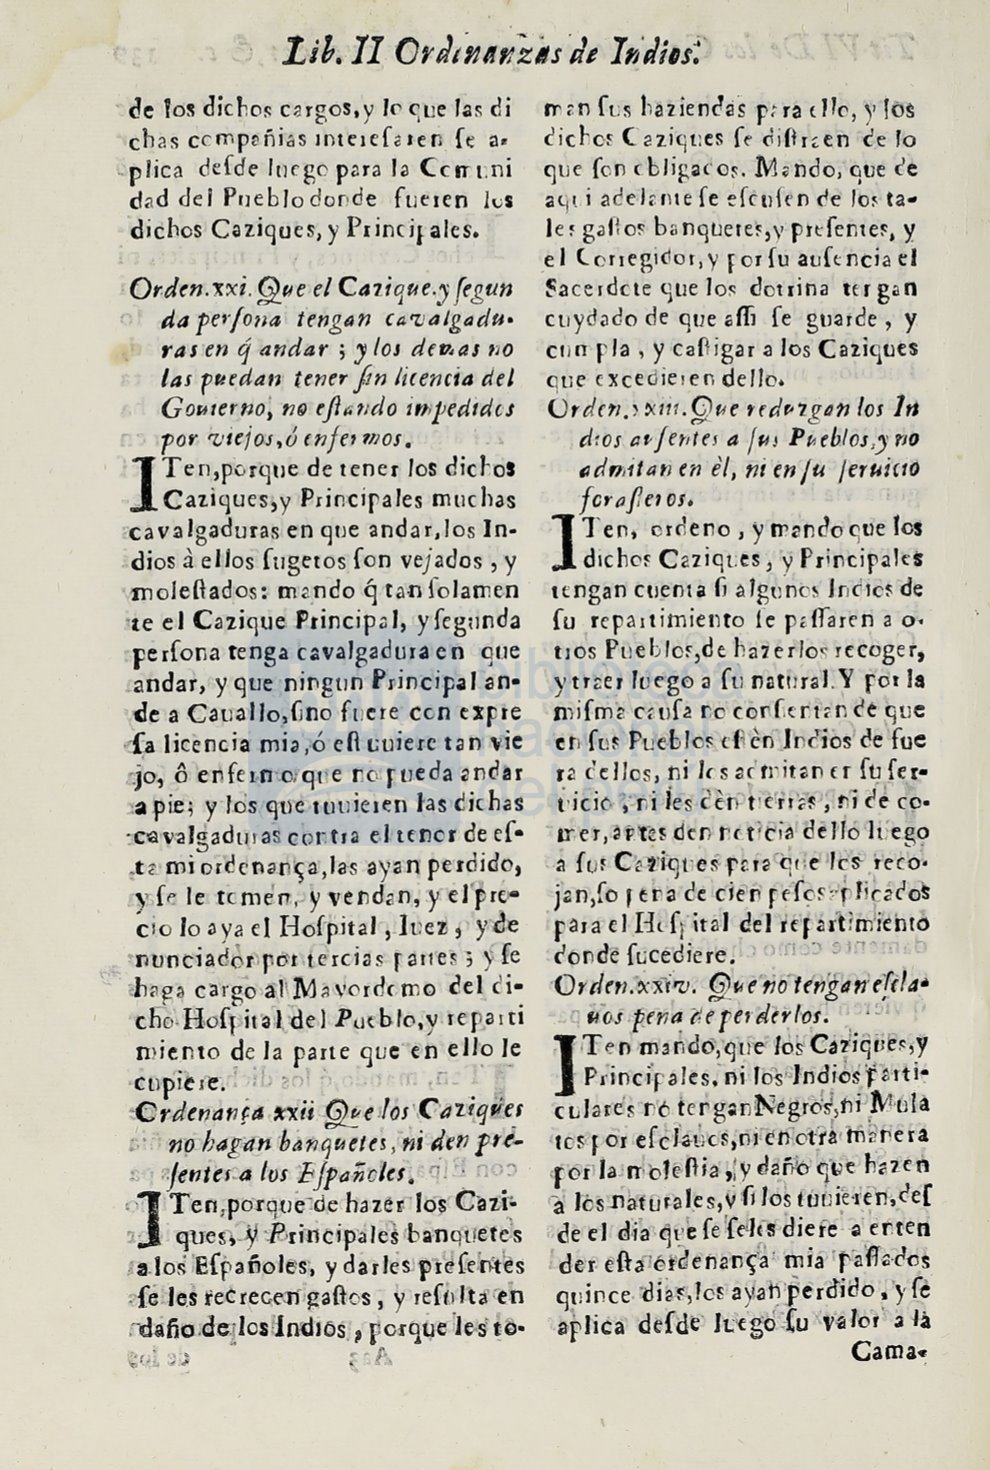 Lib. II Ordenanzas de Indios.
de los dichos cargos, y lo que las di
chas compañias interesaren se a-
plica desde luego para la Comuni
dad del Pueblo donde fueren los
dichos Caziques, y Principales.
Orden.xxi. Que el Cazique.y segun
da persona tengan cavalgadu-
ras en q̃ andar ; y los demas no
las puedan tener sin licencia del
Gouierno, no estando impedidos
por viejos,ò enfermos.
ITen,porque de tener los dichos
Caziques,y Principales muchas
cavalgaduras en que andar,los In-
dios à ellos sugetos son vejados , y
molestados: mando q̃ tan solamen
te el Cazique Principal, y segunda
persona tenga cavalgadura en que
andar, y que ningun Principal an-
de a Cauallo,sino fuere con expre
sa licencia mia,ó estuuiere tan vie
jo, ô enfermo que no pueda andar
a pie; y los que tuuieren las dichas
cavalgaduras contra el tenor de es-
ta mi ordenança,las ayan perdido,
y se le tomen, y vendan, y el pre-
cio lo aya el Hospital , Iuez , y de
nunciador por tercias partes ; y se
haga cargo al Mayordomo del di-
cho Hospital del Pueblo,y reparti
miento de la parte que en ello le
cupiere.
Ordenança xxii Que los Caziques
no hagan banquetes, ni den pre-
sentes a los Españoles.
ITen,porque de hazer los Cazi-
ques, y Principales banquetes
a los Españoles, y darles presentes
se les recrecen gastos , y resulta en
daño de los Indios , porque les to-
man sus haziendas para ello, y los
dichos Caziques se distraen de lo
que son obligados. Mando, que de
aqui adelante se escusen de los ta-
les gastos banquetes,y presentes, y
el Corregidor,y por su ausencia el
Sacerdote que los dotrina tengan
cuydado de que assi se guarde , y
cumpla , y castigar a los Caziques
que excedieren dello.
Orden.xxiii. Que reduzgan los In
dios ausentes a sus Pueblos,y no
admitan en èl, ni en su seruicio
forasteros.
ITen, ordeno , y mando que los
dichos Caziques , y Principales
tengan cuenta si algunos Indios de
su repartimiento se passaren a o-
tros Pueblos,de hazerlos recoger,
y traer luego a su natural. Y por la
misma causa no consientan de que
en sus Pueblos estèn Indios de fue
ra dellos, ni los admitan en su ser-
uicio , ni les dèn tierras , ni de co-
mer,antes den noticia dello luego
a sus Caziques para que los reco-
jan,so pena de cien pesos aplicados
para el Hospital del repartimiento
donde sucediere.
Orden.xxiv. Que no tengan escla-
uos pena de perderlos.
ITen mando,que los Caziques,y
Principales, ni los Indios parti-
culares no tengan Negros,ni Mula
tos por esclauos,ni en otra manera
por la molestia , y daño que hazen
a los naturales,y si los tuuieren,des
de el dia que se seles diere a enten
der esta ordenança mia passados
quince dias,los ayan perdido , y se
aplica desde luego su valor a la
Cama-